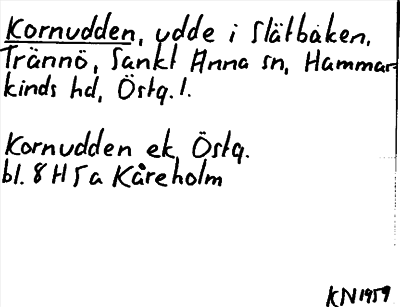 Kornudden, udde i Slätbaken.
Trännö, Sankt Anna sn, Hammar-
kinds hd, Östg. l.
Kornudden ek, Östg.
bl. 8 H 5 a Kåreholm
KN 1959